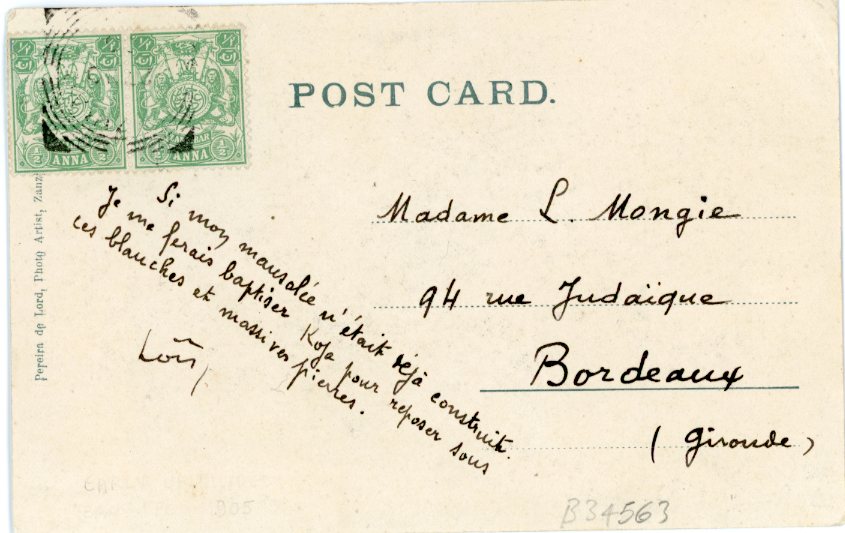 POST CARD.
½ ANNA ½
½ ANNA ½
Pereira de Lord, Photo Artist, Zanz
Si mon mausolée n'était déjà construit.
Je me ferais baptiser Koja pour reposer sous
ces blanches et massives pierres.
Madame L. Mongie
94 rue Judaïque
Bordeaux
(Gironde)
B34563